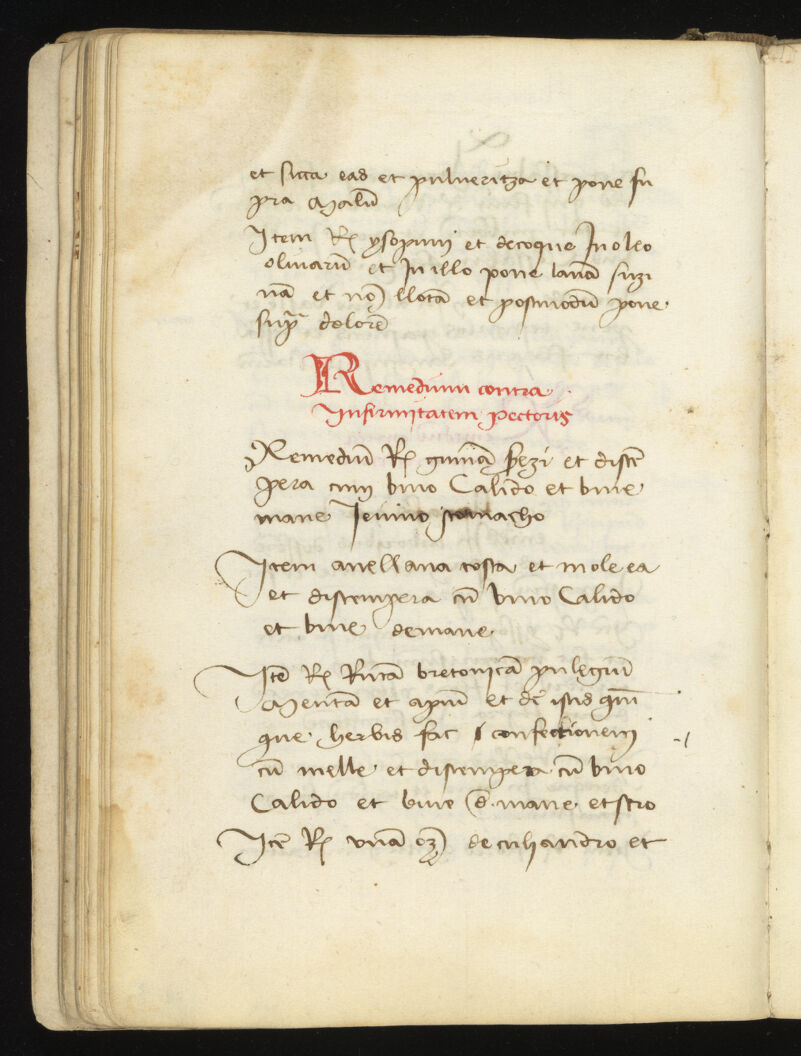 et sicca eas et pulueritza et pone su
pra malū
Item R͛ ysopum et decoque In oleo
oliuarū et In illo pone lanā suzi
nā et nō llotā et postmodū pone
supra dolorē
Remedium contra
Infirmitatem pectoris
Remediū R͛ gumā et distē
pera cum bino Calido et biue
mane Ieiuno stomacho
Item auellana tosta et mole ea
et distempera cū bino Calido
et biue demane
Itē R͛ Rutā bretonicā pulegiū
Mentā et apiū et de istis quī
que herbis fac confectionem
cū melle et distempera cū bino
Calido et biue de mane et sero
Itē R͛ vnā oz de culiandro et